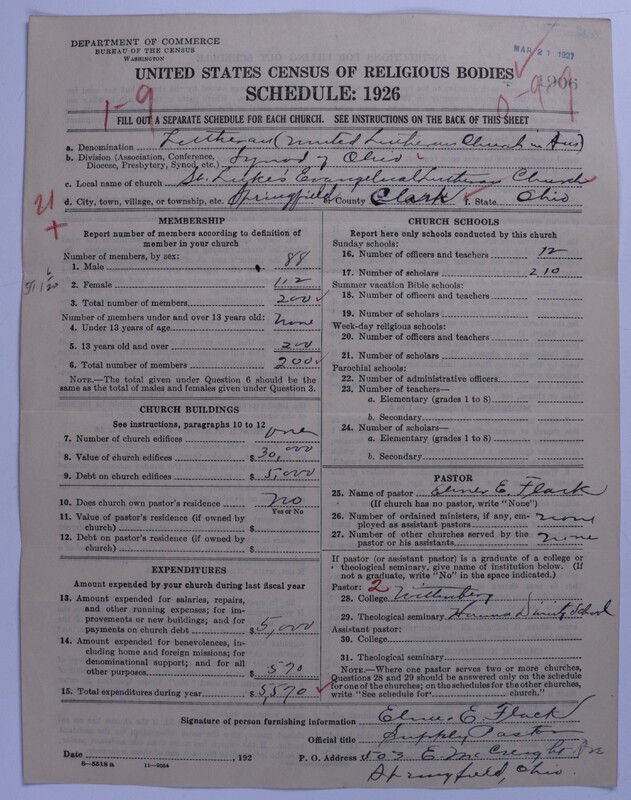 DEPARTMENT OF COMMERCE
BUREAU OF THE CENSUS
WASHINGTON
MAR 21 1927
UNITED STATES CENSUS OF RELIGIOUS BODIES
1906
SCHEDULE: 1926
1-9
FILL OUT A SEPARATE SCHEDULE FOR EACH CHURCH. SEE INSTRUCTIONS ON THE BACK OF THIS SHEET
a. Denomination Lutheran (United Lutheran Church in Am)
b. Division (Association, Conference, Diocese, Presbytery, Synod, etc.) Synod of Ohio
c. Local name of church St. Luke's Evangelical Lutheran Church
d. City, town, village, or township, etc. Springfield e. County Clark f. State Ohio
MEMBERSHIP
Report number of members according to definition of member in your church
Number of members, by sex:
1. Male 88
2. Female 112
3. Total number of members 200
Number of members under and over 13 years old:
4. Under 13 years of age none
5. 13 years old and over 200
6. Total number of members 200
NOTE.—The total given under Question 6 should be the same as the total of males and females given under Question 3.
CHURCH BUILDINGS
See instructions, paragraphs 10 to 12
7. Number of church edifices one
8. Value of church edifices $ 30,000
9. Debt on church edifices $ 5,000
10. Does church own pastor's residence? No
Yes or No
11. Value of pastor's residence (if owned by church) $
12. Debt on pastor's residence (if owned by church) $
EXPENDITURES
Amount expended by your church during last fiscal year
13. Amount expended for salaries, repairs, and other running expenses; for improvements or new buildings; and for payments on church debt $ 5,000
14. Amount expended for benevolences, including home and foreign missions; for denominational support; and for all other purposes $ 570
15. Total expenditures during year $ 5,570
CHURCH SCHOOLS
Report here only schools conducted by this church
Sunday schools:
16. Number of officers and teachers 12
17. Number of scholars 210
Summer vacation Bible schools:
18. Number of officers and teachers
19. Number of scholars
Week-day religious schools:
20. Number of officers and teachers
21. Number of scholars
Parochial schools:
22. Number of administrative officers
23. Number of teachers—
a. Elementary (grades 1 to 8)
b. Secondary
24. Number of scholars—
a. Elementary (grades 1 to 8)
b. Secondary
PASTOR
25. Name of pastor Elmer E. Flack
(If church has no pastor, write "None")
26. Number of ordained ministers, if any, employed as assistant pastors none
27. Number of other churches served by the pastor or his assistants none
If pastor (or assistant pastor) is a graduate of a college or theological seminary, give name of institution below. (If not a graduate, write "No" in the space indicated.)
Pastor: 2
28. College Wittenberg
29. Theological seminary Hamma Divinity School
Assistant pastor:
30. College
31. Theological seminary
NOTE.—Where one pastor serves two or more churches, Questions 28 and 29 should be answered only on the schedule for one of the churches; on the schedules for the other churches, write "See schedule for church."
Signature of person furnishing information Elmer E. Flack
Official title Supply Pastor
Date , 192 P. O. Address 503 E. McCreight
Springfield, Ohio.
8—5519 a 11—9024